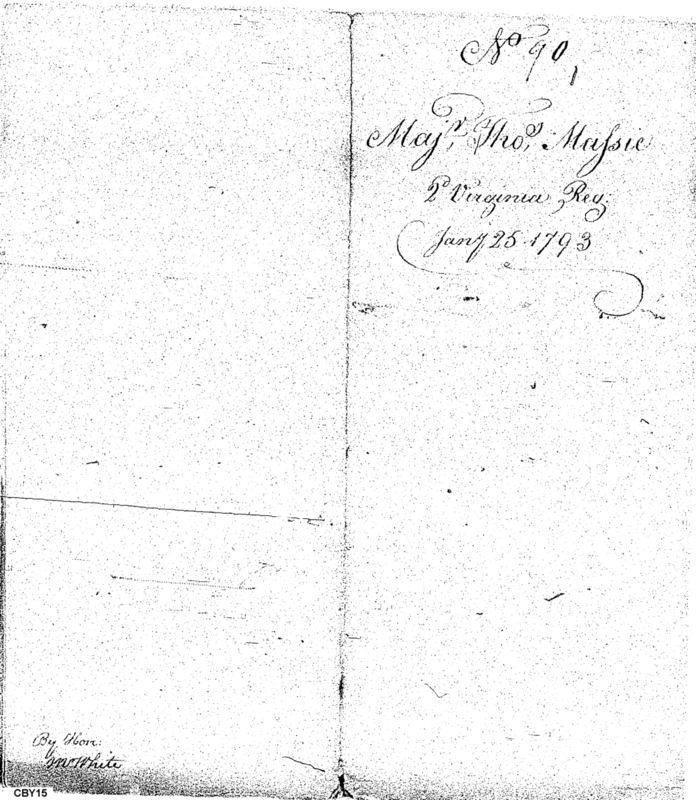 No 90,
Majr. Thos. Massie
2d Virginia Reg:
Jany 25. 1793
By Hon:
Mr White
CBY15